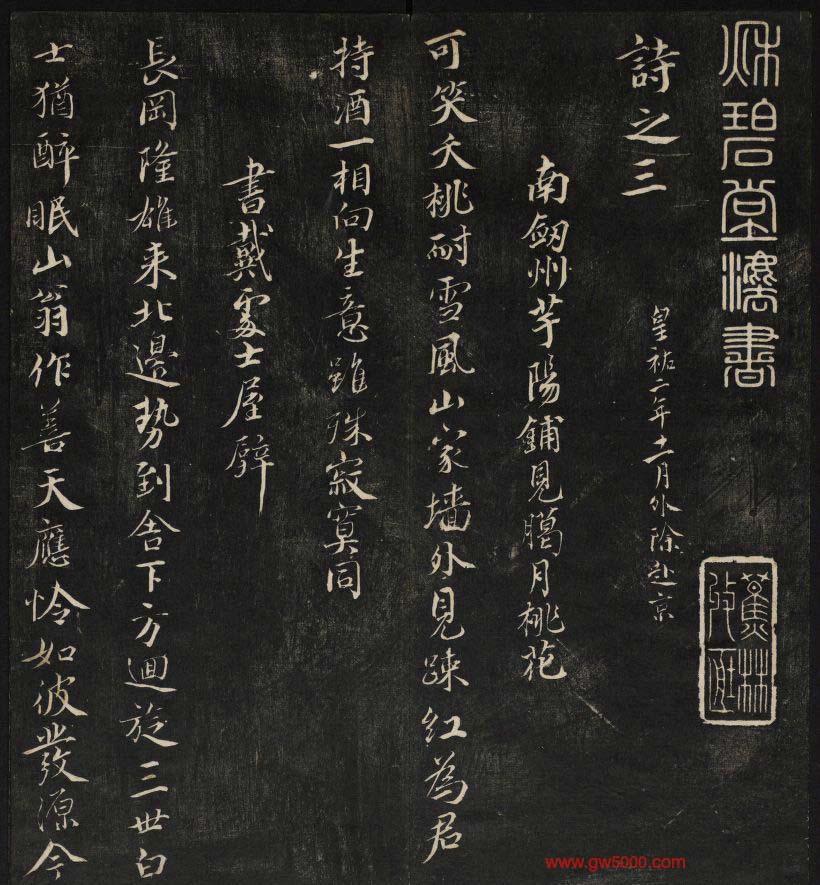 秋碧堂法書
蕉林收藏
詩之三
皇祐二年十一月外除赴京
南劒州芋陽鋪見臈月桃花
可笑夭桃耐雪風山家墻外見踈紅為君
持酒一相向生意雖殊寂寞同
書戴處士屋壁
長岡隆雄来北邊勢到舎下方迴旋三世白
士猶醉眠山翁作善天應憐如彼發源今
www.gw5000.com